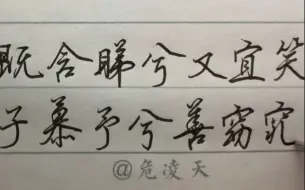 既含睇兮又宜笑
子慕予兮善窈窕
@危凌天